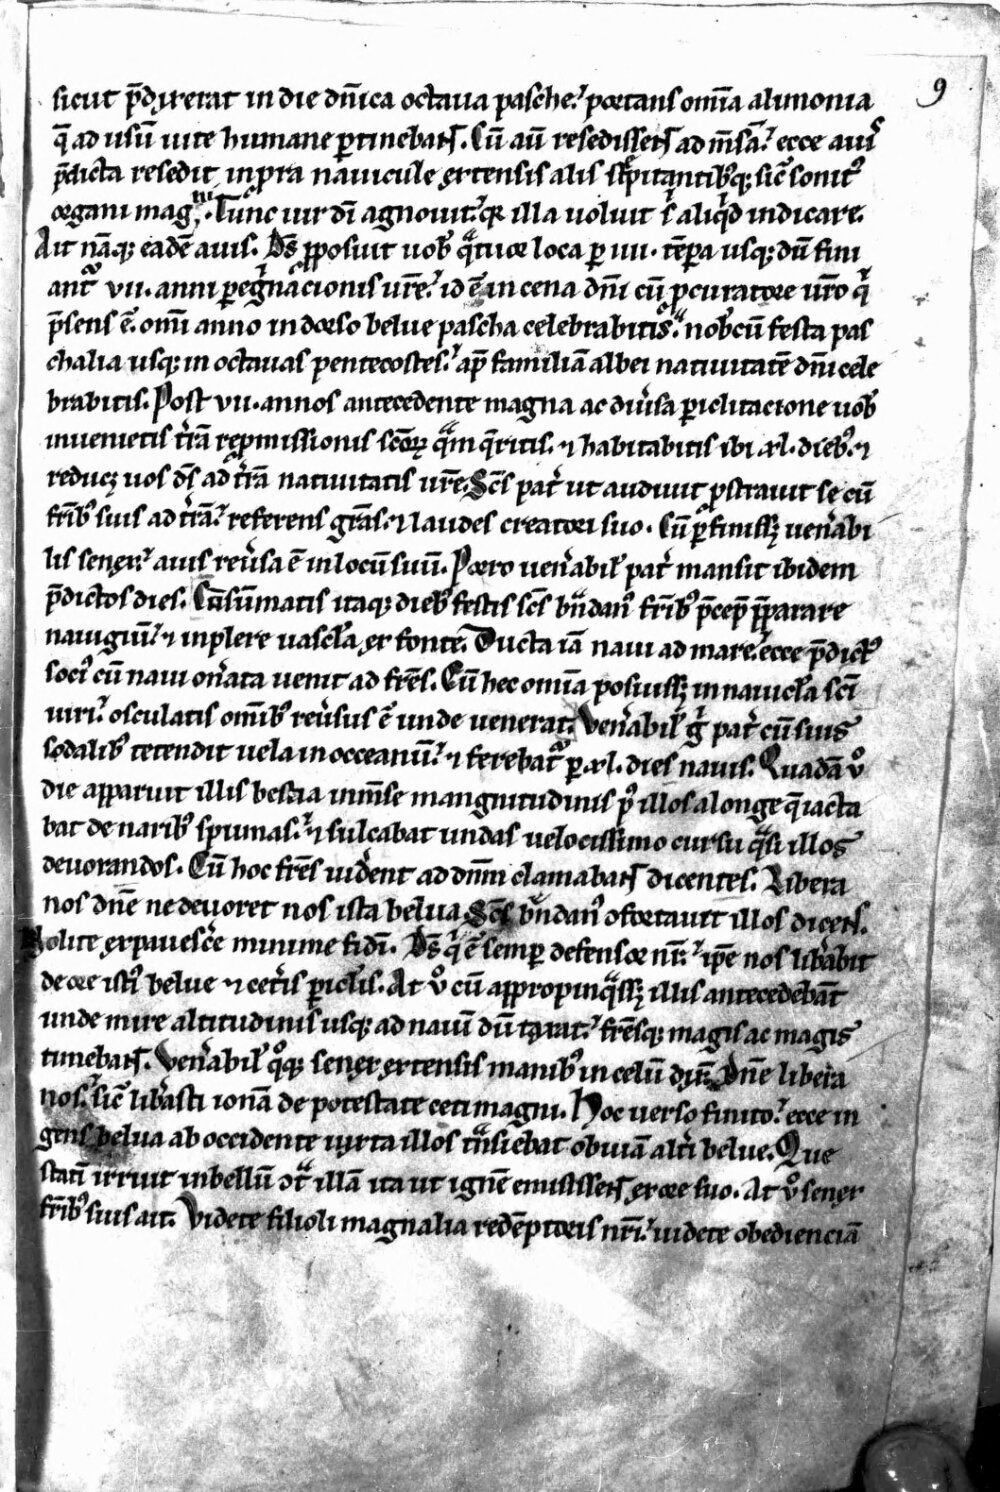 9
sicut p̄dixerat in die dn̄ica octaua pasche. portans om̄ia alimonia
q̄ ad usū uite humane ꝑtinebant. Cū aū resedissent ad mēsā. ecce auis
p̄dicta resedit in prora nauicule extensis alis strepitantibꝰqꝫ sic̄ sonitꝰ
organi magni. Tunc uir dī agnouit. qꝛ illa uoluit s aliqͥd indicare.
Ait nāqꝫ eadē auis. Ds̄ ꝓposuit uob̄ qᵃtuor loca ꝑ iiii. tēpora usqꝫ dū fini
ant᷑ vii. anni ꝑegͥnacionis ur̄e. id ē in cena dn̄i cū ꝓcuratore ur̄o qͥ
p̄sens ē. omī anno in dorso belue pascha celebrabitis. nob̄cū festa pas
chalia usqꝫ in octauas pentecostes. ap̄ familiā albei natiuitatē dn̄i cele
brabitis. Post vii. annos antecedente magna ac diu̓sa ꝑiclitacione uob̄
inuenietis t̓rā repmissionis sc̄oꝝ qᵃm q̄ritis. ⁊ habitabitis ibi xl. diebꝰ. ⁊
reducꝫ uos ds̄ ad t̓rā natiuitatis ur̄e. Sc̄s pat̓ ut audiuit ꝓstrauit se cū
fr̄ibꝰ suis ad t̓rā. referens gr̄as. ⁊ laudes creatori suo. Cū ꝑfinissꝫ uen̓abi
lis senex. auis reu̓sa ē in locū suū. Porro uen̓abił pat̓ mansit ibidem
p̄dictos dies. Cūsūmatis itaqꝫ diebꝰ festis sc̄s bn̄danꝰ fr̄ibꝰ p̄cep̄ p̄parare
nauigiū. ⁊ inplere uascła ex fonte. Ducta iā naui ad mare. ecce p̄dictꝰ
soci cū naui on̓ata uenit ad fr̄es. Cū hec om̄ia posuissꝫ in nauicła sc̄i
uiri. osculatis om̄ibꝰ reu̓sus ē unde uenerat. Uen̓abił gͥ pat̓ cū suis
sodalibꝰ tetendit uela in occeanū. ⁊ ferebat᷑ ꝑ xl. dies nauis. Quadā uͦ
die apparuit illis bestia inm̄se mangnitudinis pꝰ illos a longe q̄ iacta
bat de naribꝰ spumas. ⁊ sulcabat undas uelocissimo cursu qᵃsi illos
deuorandos. Cū hoc fr̄es uid̓ent ad dn̄m clamabant dicentes. Libera
nos dn̄e ne deuoret nos ista belua. Sc̄s bn̄danꝰ ɔfortauit illos dicens.
Nolite expauesc̓e minime fidī. Ds̄ qͥ ē semꝑ defensor nr̄. ip̄e nos lib̓abit
de ore istiꝰ belue ⁊ cet̓is ꝑiclis. At uͦ cū appropinqᵃssꝫ illis antecedebāt
unde mire altitudinis usqꝫ ad nauī dū tarat. fr̄esqꝫ magis ac magis
timebant. Uen̓abił qͦqꝫ senex extensis manibꝰ in celū dix̄. Dn̄e libera
nos. sic̄ lib̓asti ionā de potestate ceti magni. Hoc uerso finito. ecce in
gens belua ab occidente iuxta illos tᵃnsiebat obuiā alt̓i belue. Que
statī irruit in bellū ɔtᵃ illā ita ut ignē emisissent ex ore suo. At uͦ senex
fr̄ibꝰ suis ait. Videte filioli magnalia redēptoris nr̄i. uidete obedienciā